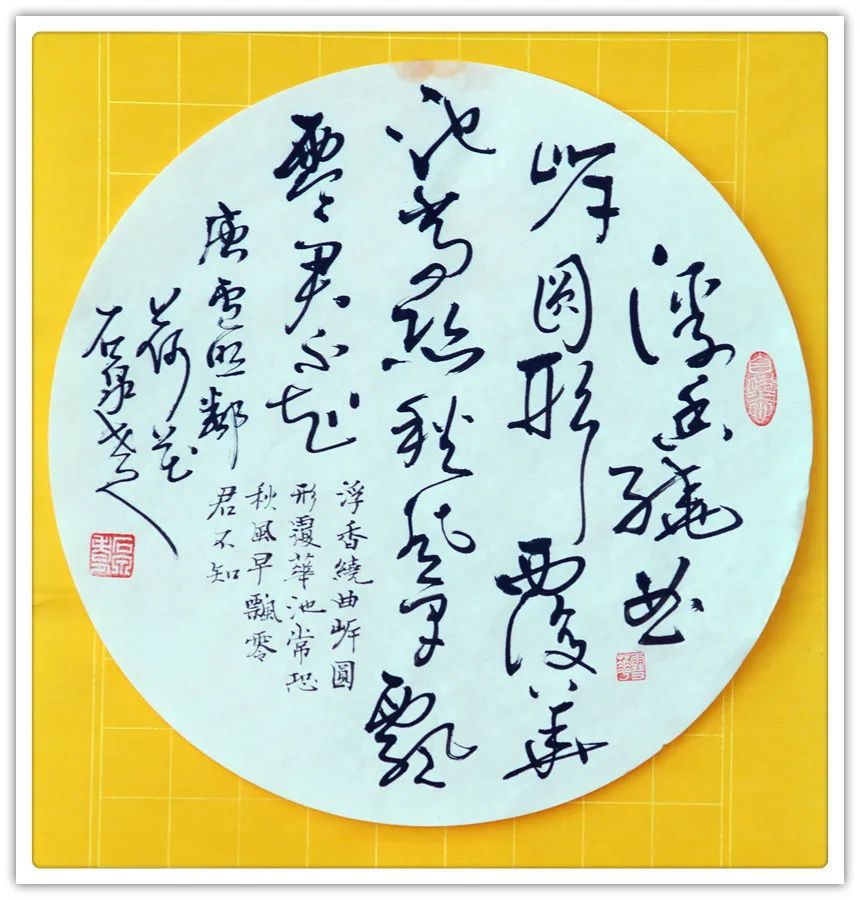 浮香繞曲
岸圓形覆華
池常恐秋風早飄
零君不知
唐盧照鄰
荷花
石泉書
浮香繞曲岸圓
形覆華池常恐
秋風早飄零
君不知